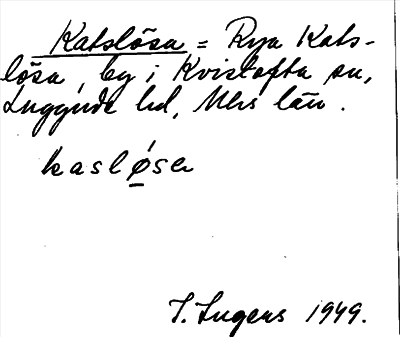 Katslösa = Rya Kats-
lösa, by i Kvistofta sn,
Luggude hd, Mhs län.
kaslǿ̱sa
I. Ingers 1949.